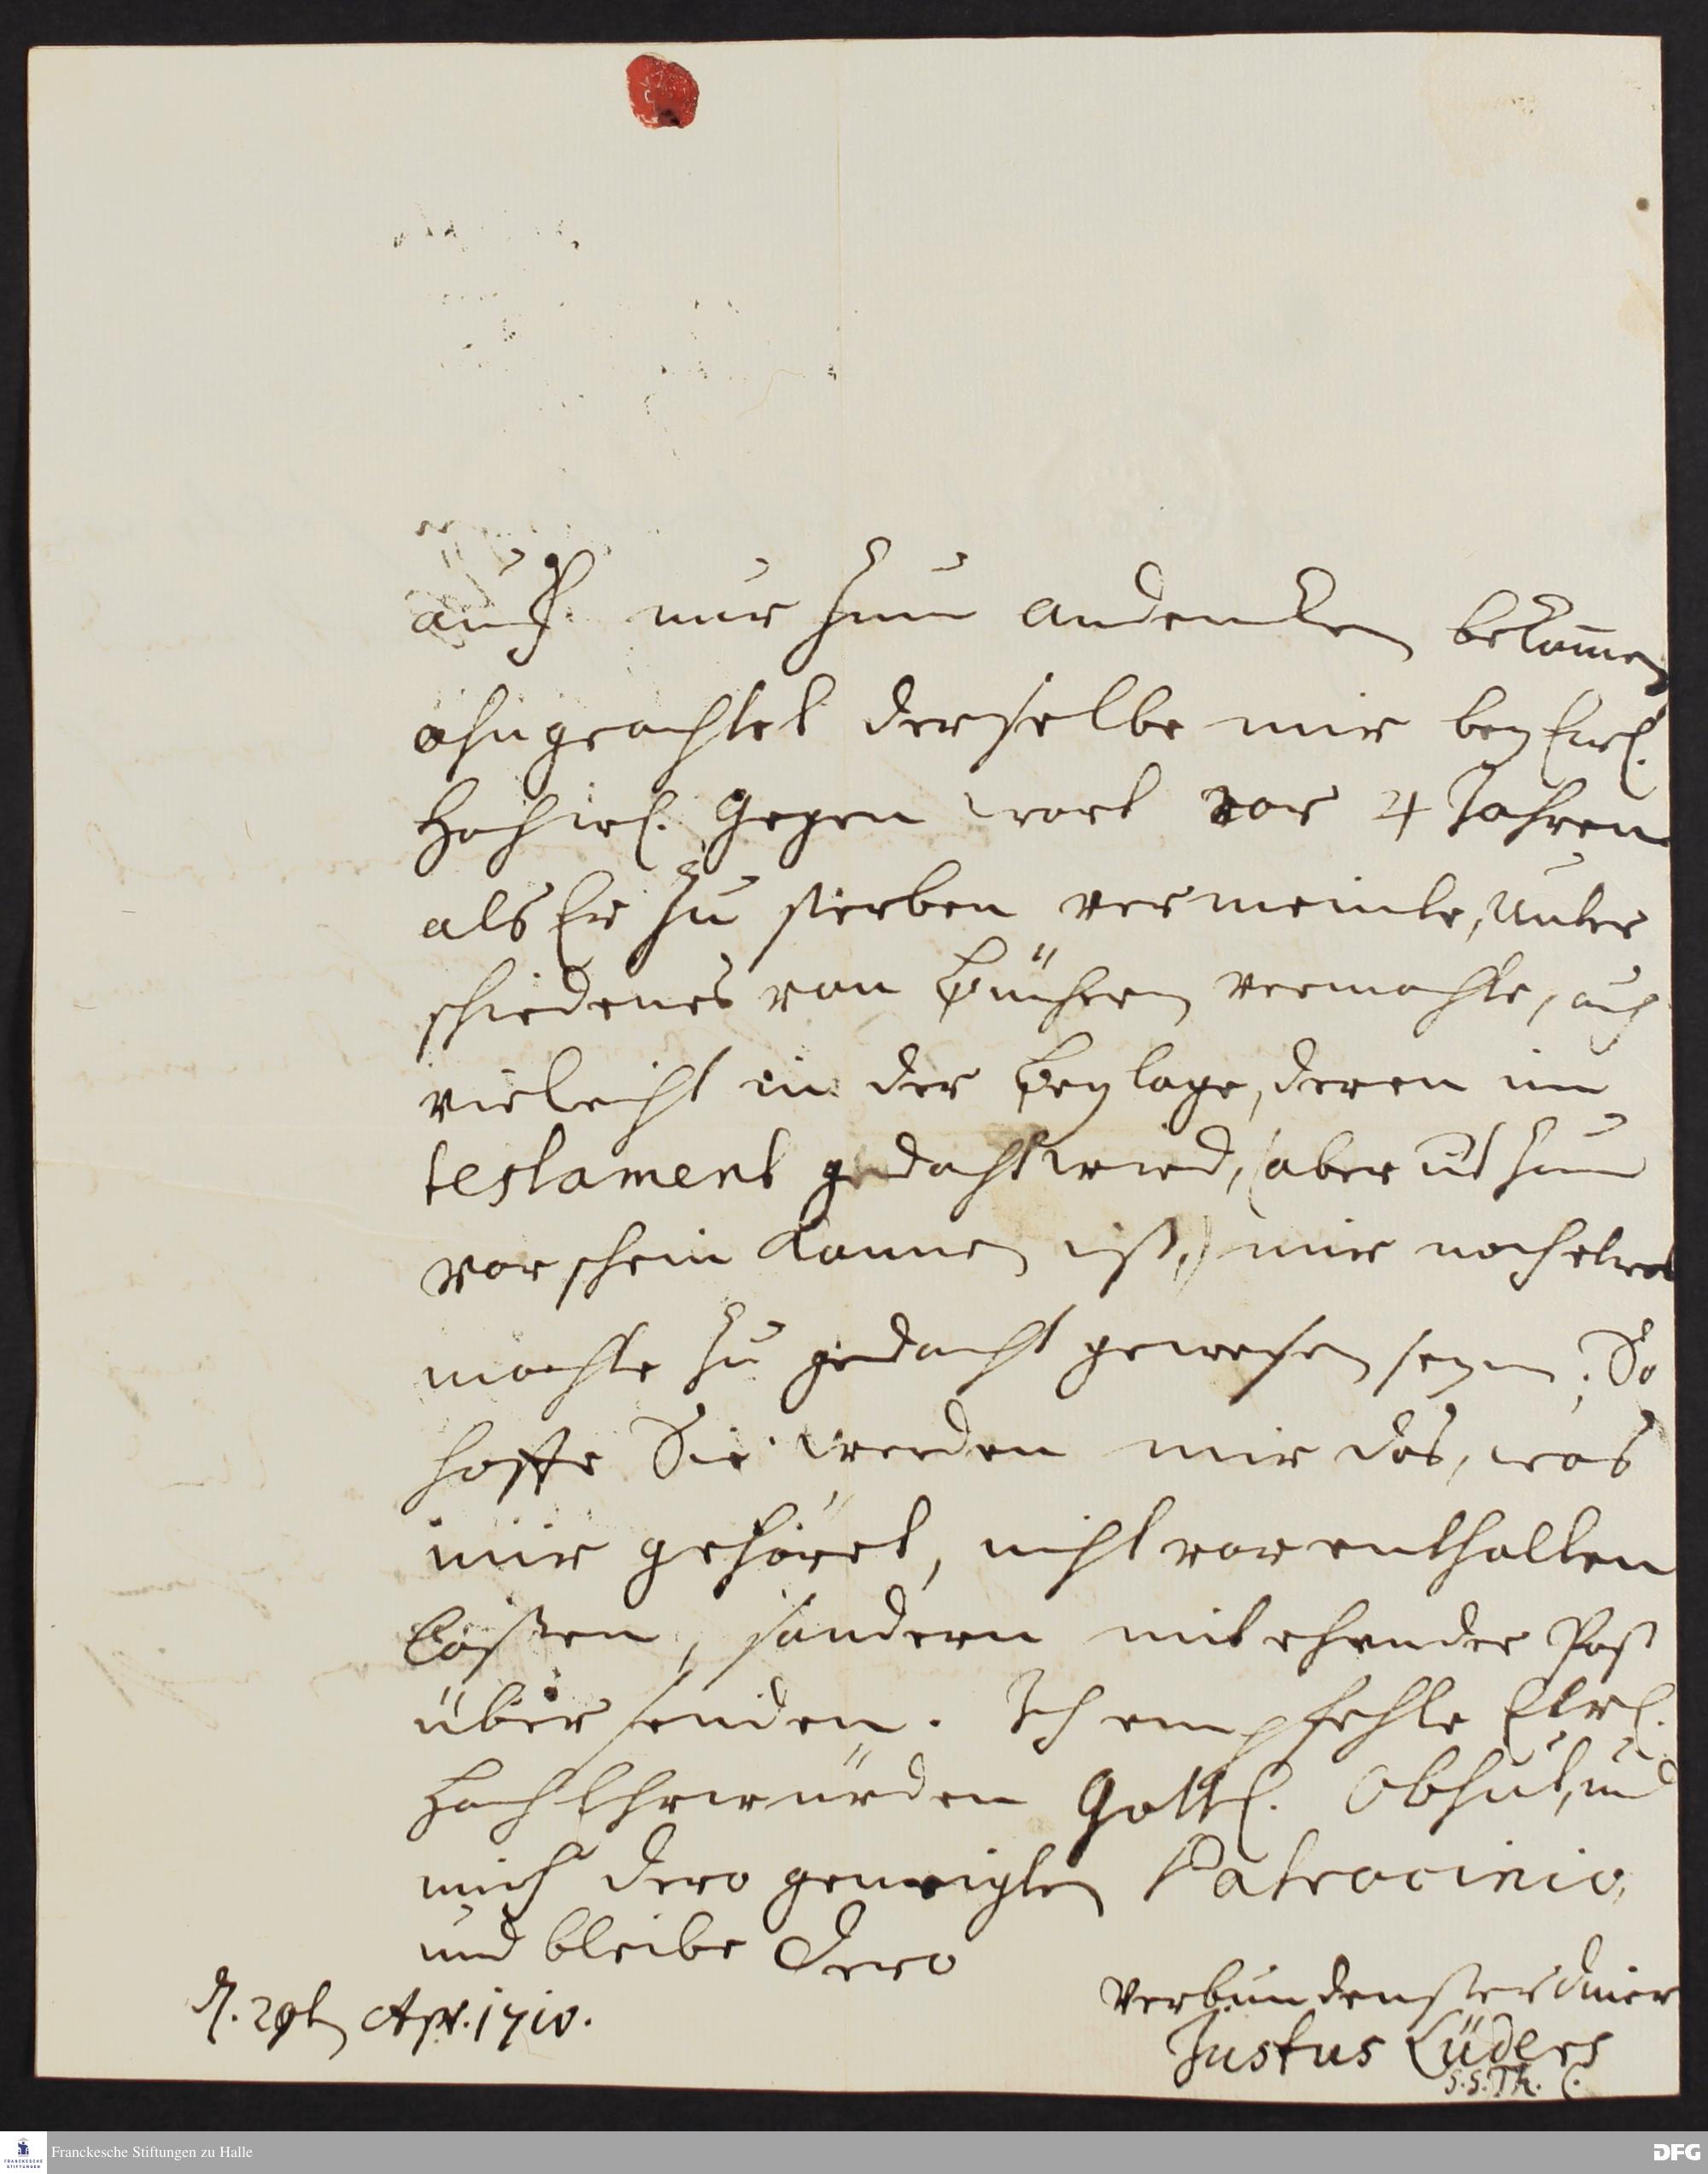 auch nur zum andencken bekommen
ohngeachtet derselbe mir bey Ewl.
Hochwl. Gegenwart vor 4 Jahren
als Er zu sterben vermeinte, Unter
schiedenes von Büchern vermachte, auch
vieleicht in der Beylage, deren im
testament gedacht wird, (aber nit zum
vorschein kommen ist,) mir noch etwas
mochte zu gedacht gewesen seyn; So
hoffe Sie werden mir das, was
mir gehöret, nicht vorenthalten
laßen, sondern mit ehender Post
übersenden. Ich empfehle Ewl.
HochEhrwürden Gottl. Obhut, und
mich dero geneigten Patrocinio,
und bleibe Dero
verbundenster diener
Justus Lüders
S.S. Th. C.
d. 29t Apr. 1710.
Franckesche Stiftungen zu Halle
DFG